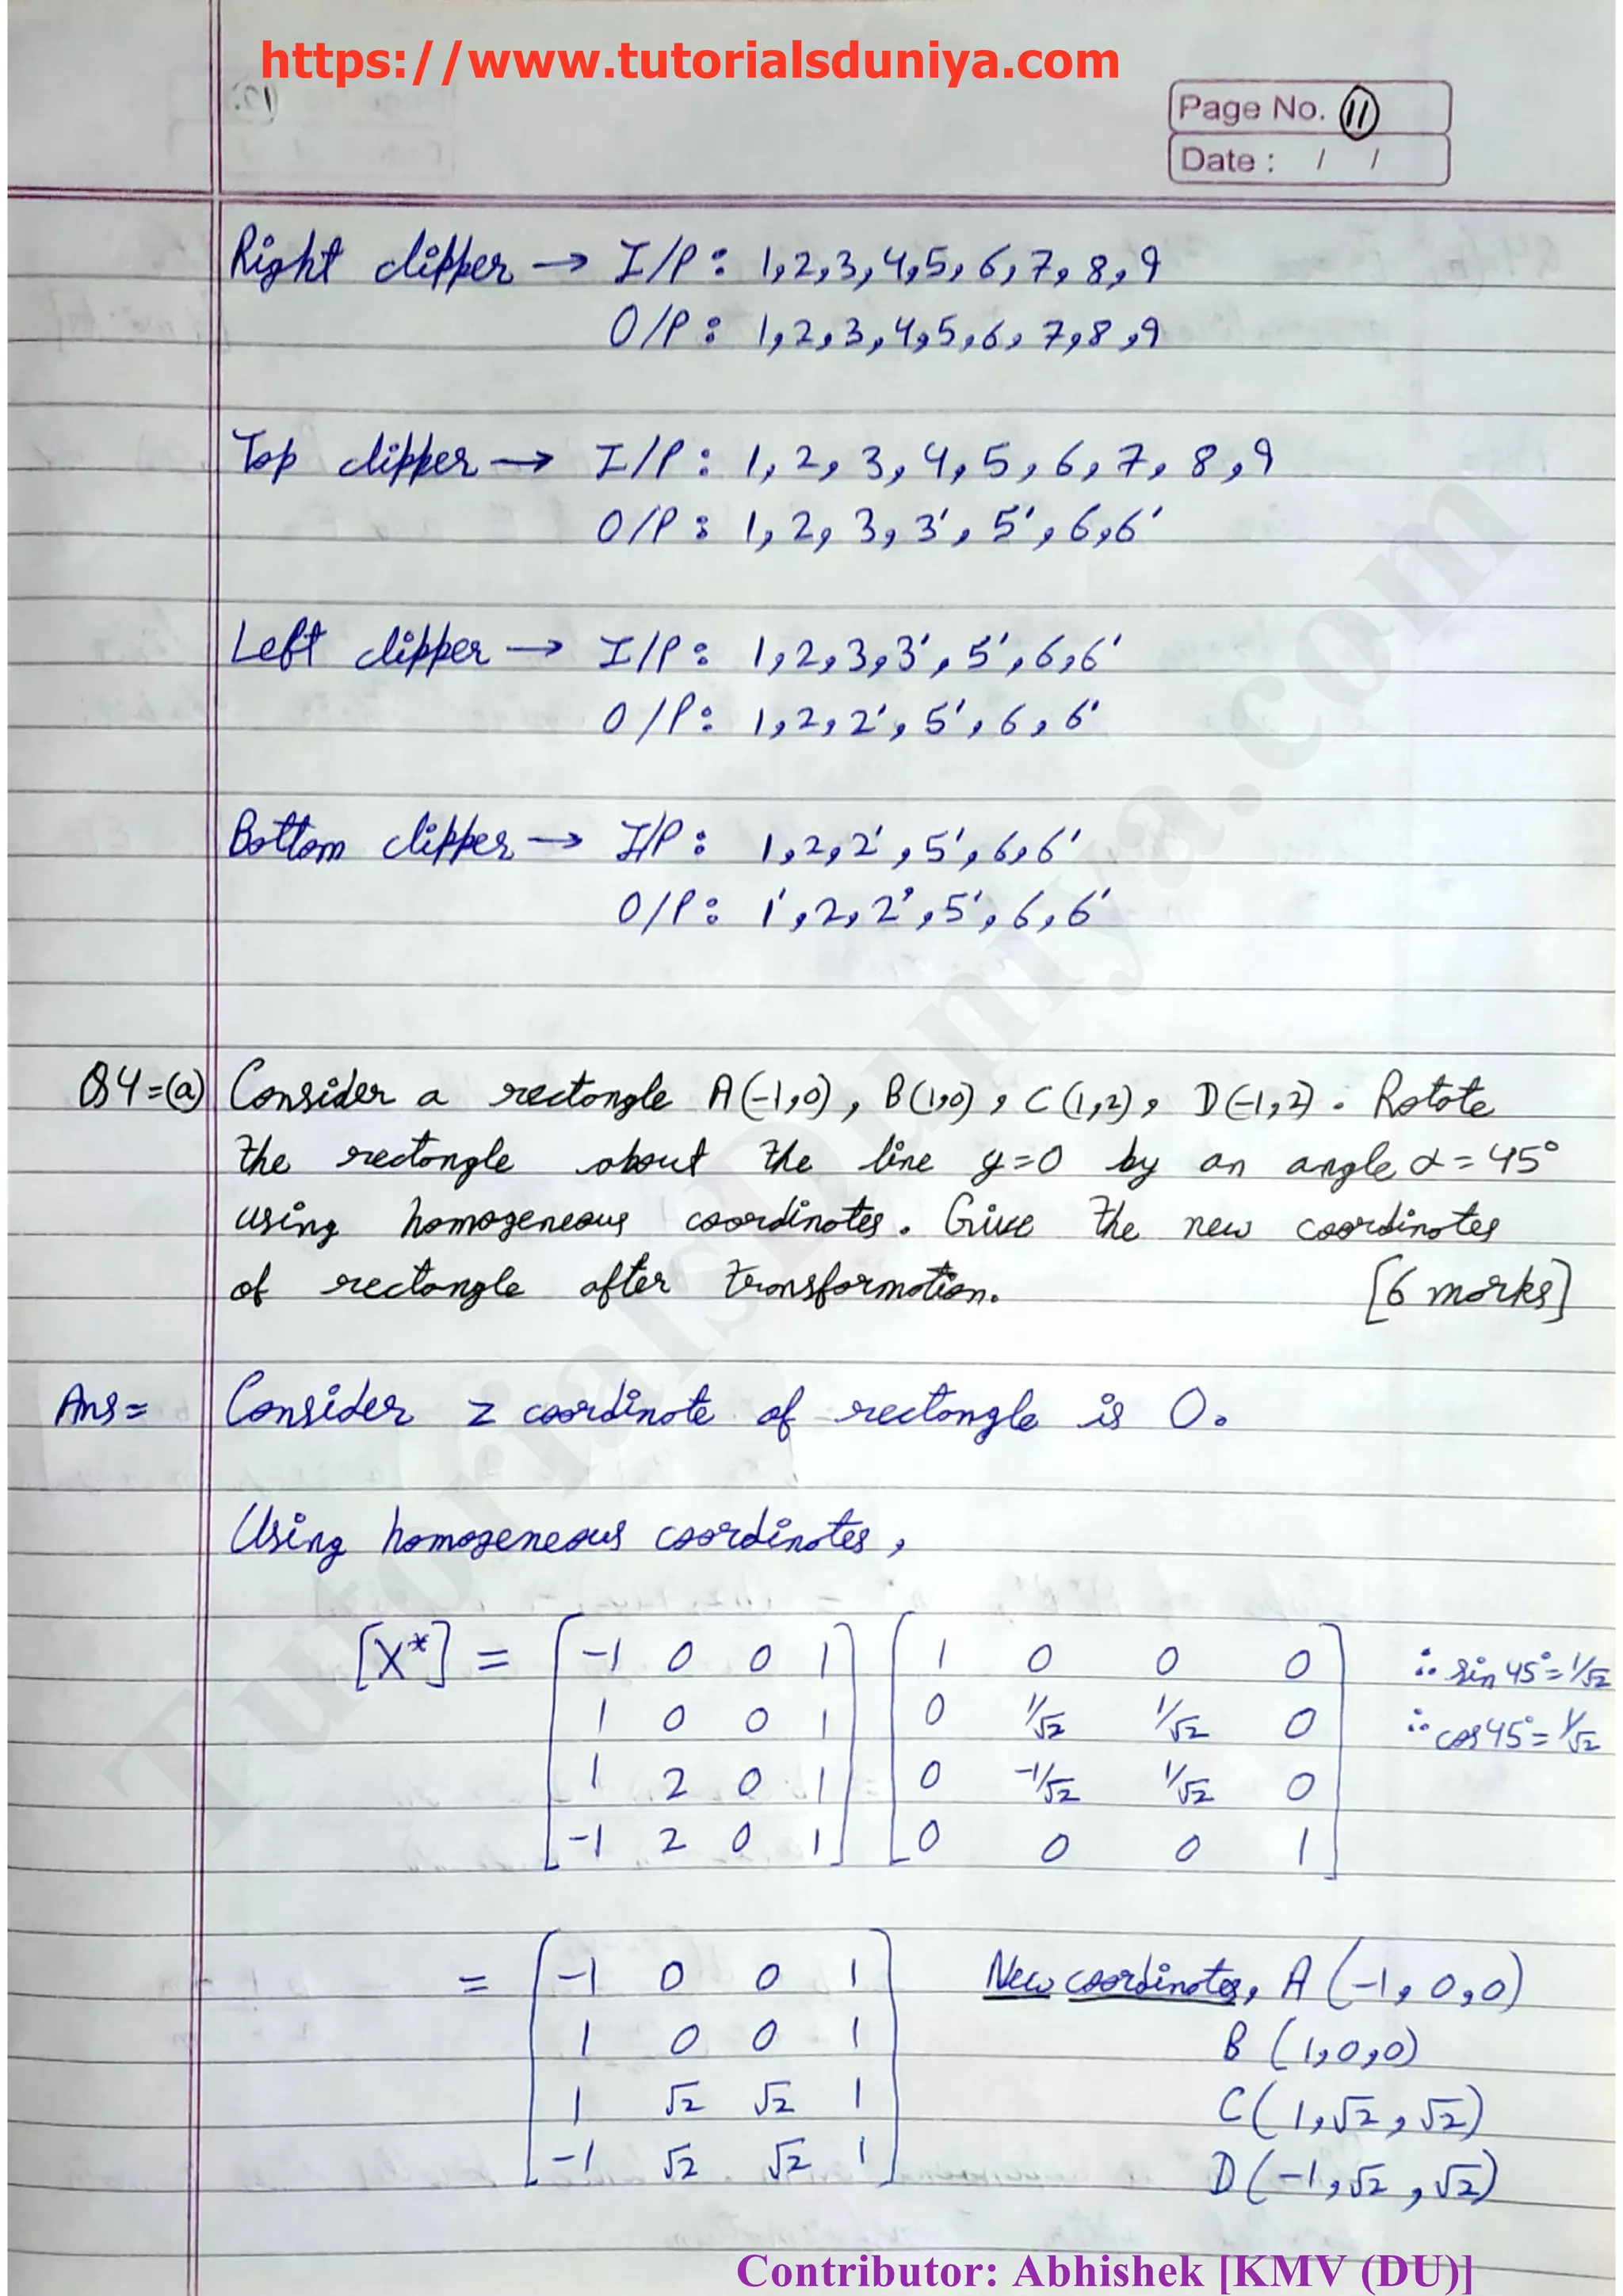 https://www.tutorialsduniya.com
Page No. 11
Date : / /
Right clipper → I/P : 1,2,3,4,5,6,7,8,9
O/P : 1,2,3,4,5,6,7,8,9
Top clipper → I/P : 1, 2, 3, 4, 5, 6, 7, 8, 9
O/P : 1, 2, 3, 3', 5', 6, 6'
Left clipper → I/P : 1,2,3,3',5',6,6'
O/P : 1,2,2',5',6,6'
Bottom clipper → I/P : 1,2,2',5',6,6'
O/P : 1',2,2',5',6,6'
Q4=(a) Consider a rectangle A(-1,0), B(1,0), C(1,2), D(-1,2). Rotate
the rectangle about the line y=0 by an angle α=45°
using homogeneous coordinates. Give the new coordinates
of rectangle after transformation. [6 marks]
Ans= Consider z coordinate of rectangle is 0.
Using homogeneous coordinates,
[X*] = [-1 0 0 1] [1 0 0 0] ∴ sin45°=1/√2
1 0 0 1 0 1/√2 1/√2 0 ∴ cos45°=1/√2
1 2 0 1 0 -1/√2 1/√2 0
-1 2 0 1 0 0 0 1
= [-1 0 0 1] New coordinates, A (-1,0,0)
1 0 0 1 B (1,0,0)
1 √2 √2 1 C(1,√2,√2)
-1 √2 √2 1 D(-1,√2,√2)
TutorialsDuniya.com
Contributor: Abhishek [KMV (DU)]